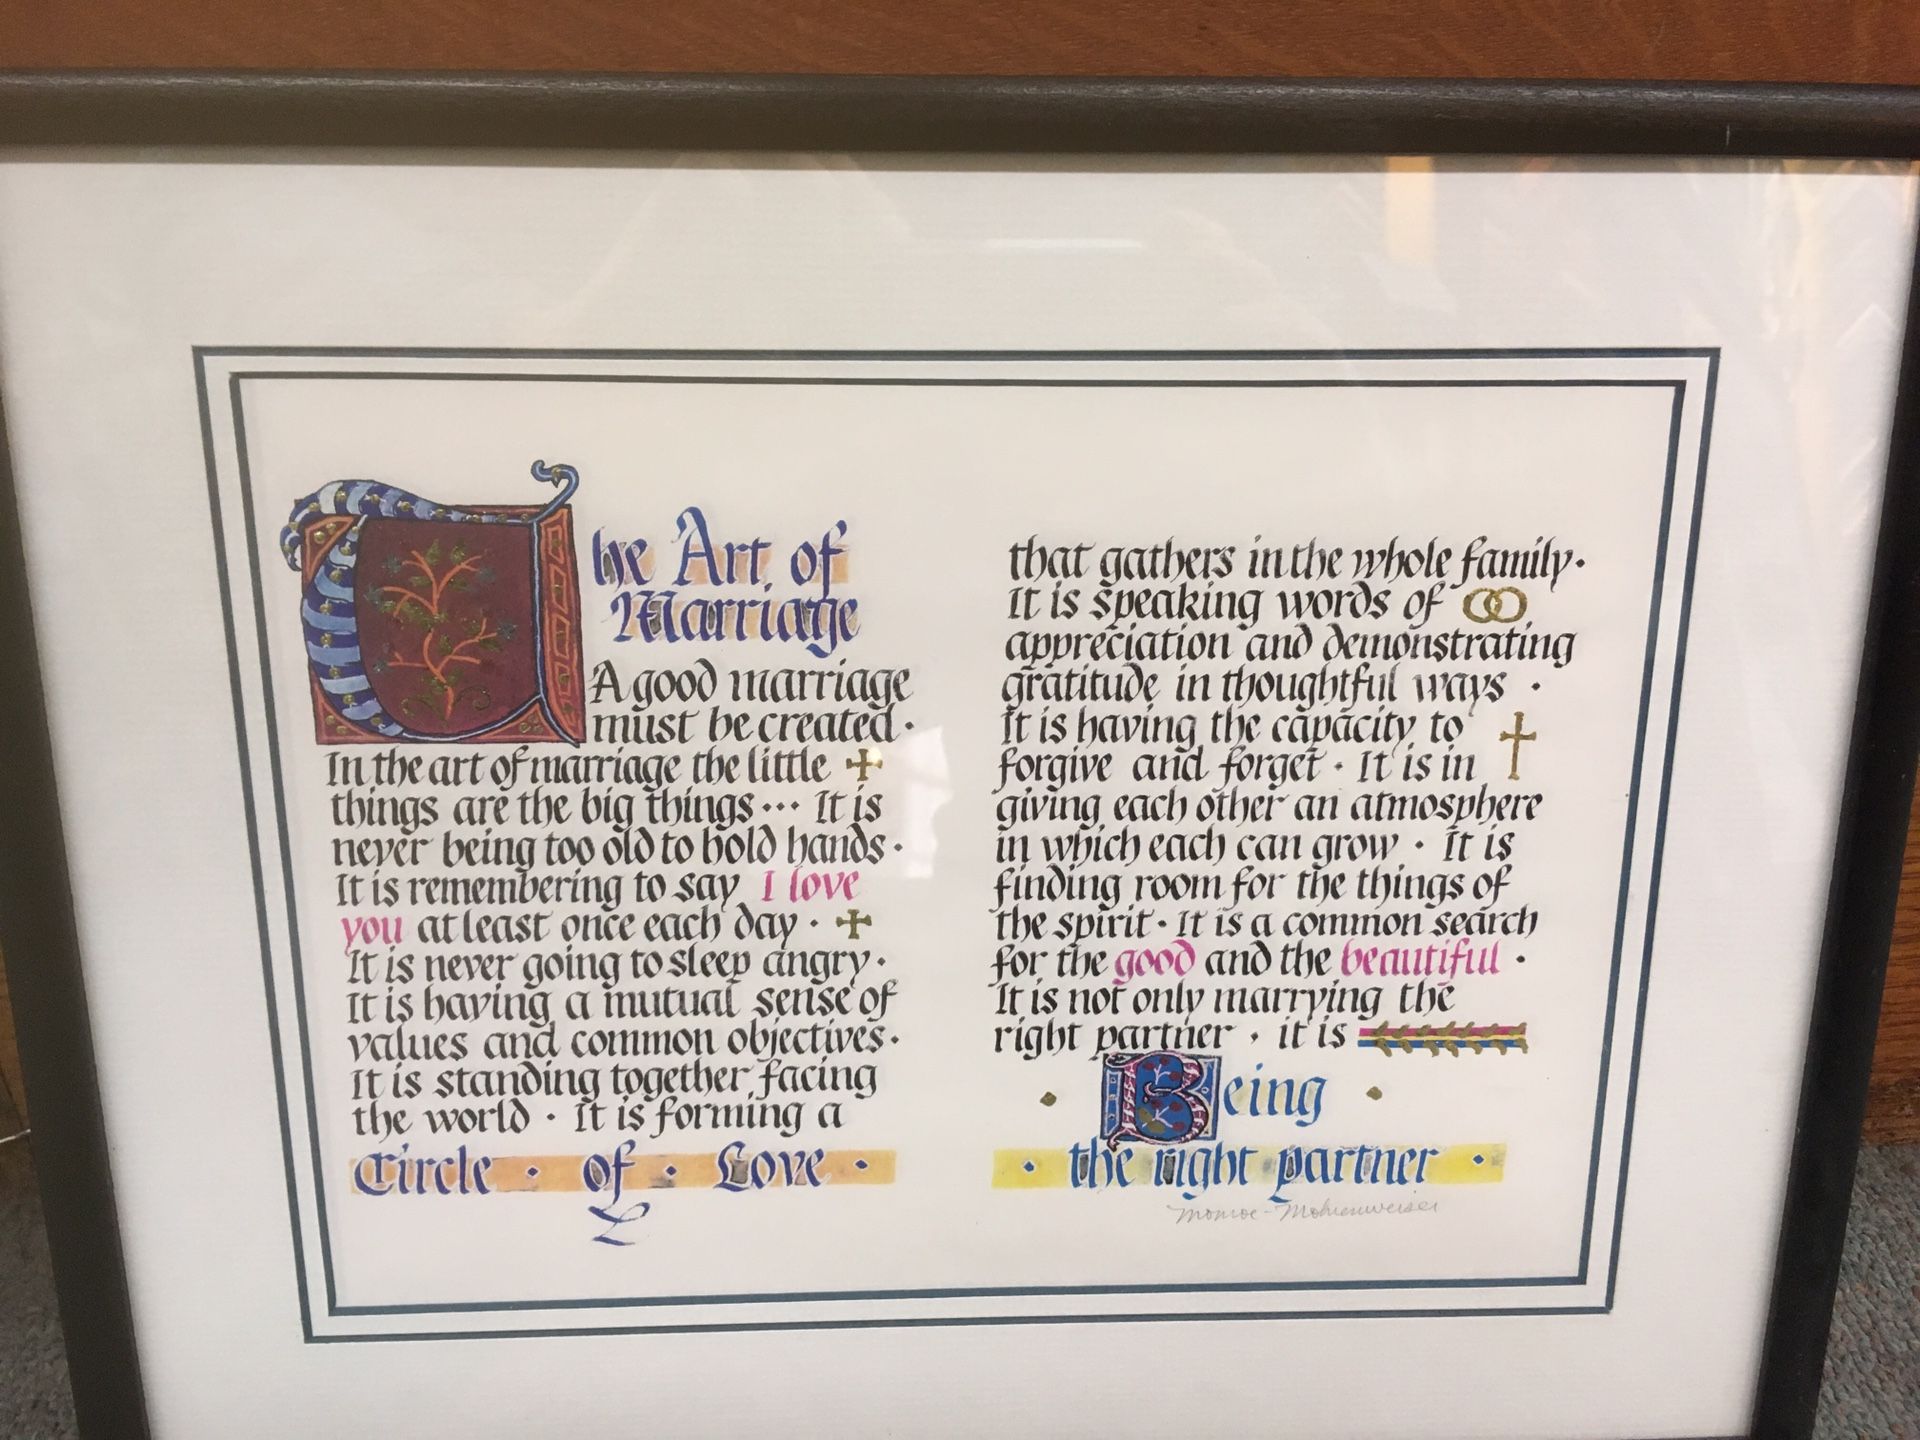 The Art of
Marriage
A good marriage
must be created·
In the art of marriage the little
things are the big things··· It is
never being too old to hold hands·
It is remembering to say I love
you at least once each day·
It is never going to sleep angry·
It is having a mutual sense of
values and common objectives·
It is standing together facing
the world· It is forming a
Circle · of · Love ·
that gathers in the whole family·
It is speaking words of
appreciation and demonstrating
gratitude in thoughtful ways ·
It is having the capacity to
forgive and forget· It is in
giving each other an atmosphere
in which each can grow · It is
finding room for the things of
the spirit· It is a common search
for the good and the beautiful ·
It is not only marrying the
right partner · it is
Being
· the right partner ·
Monroe-Mohrenweiser